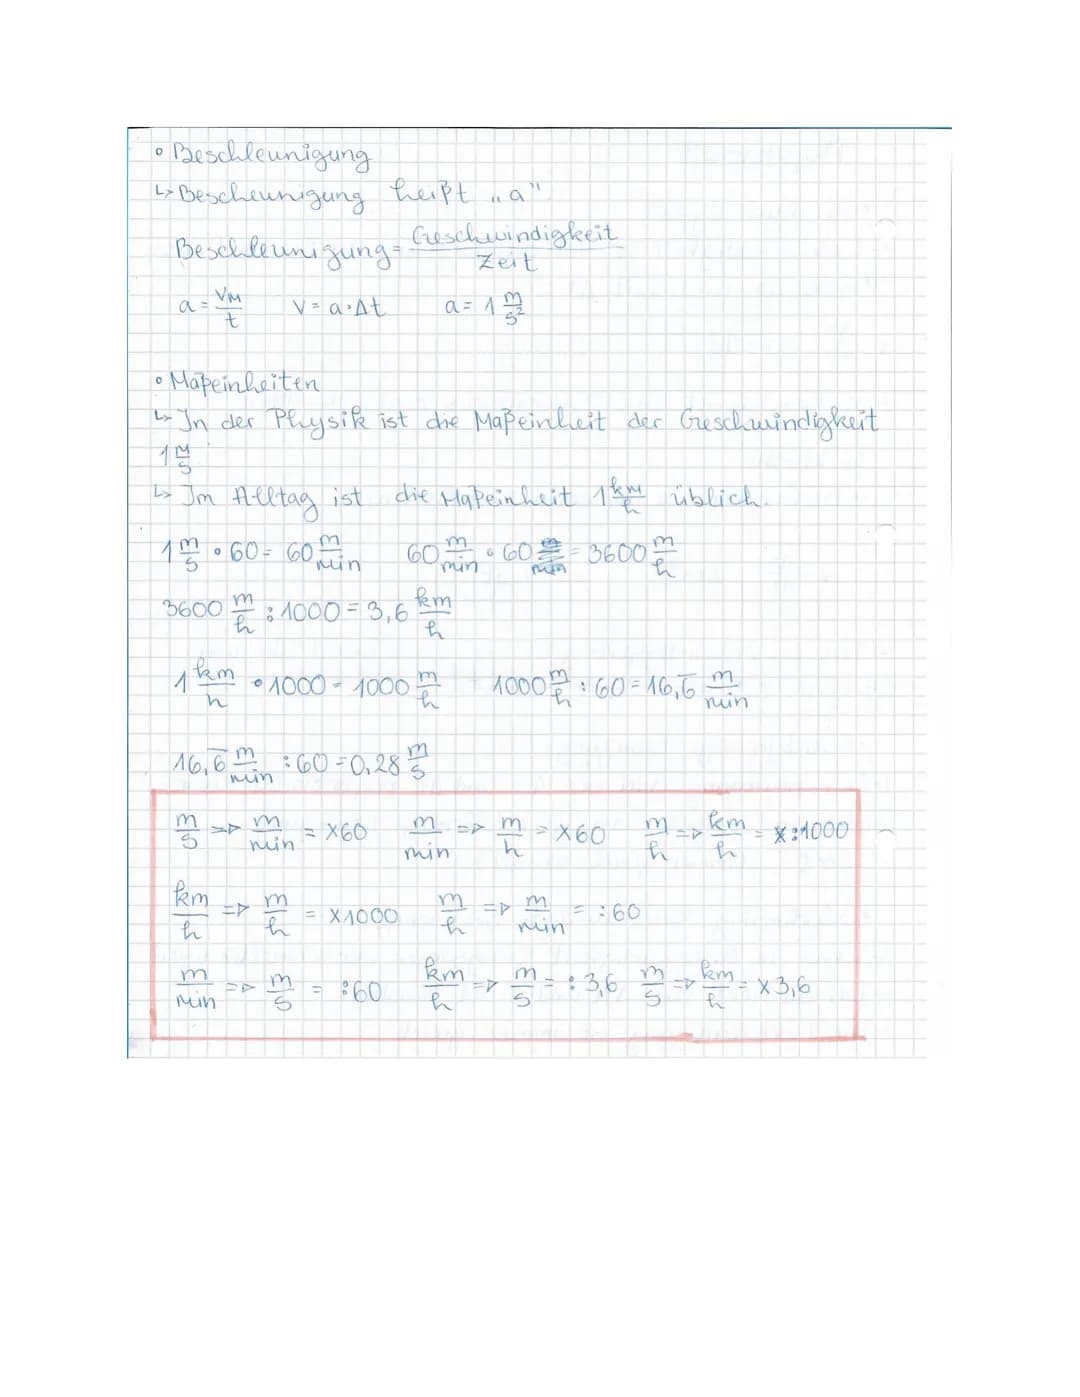 • Beschleunigung
↳ Bescheunigung heißt „a"
Beschleunigung = Geschwindigkeit / Zeit
a = VM/t   V = a·Δt   a = 1 m/s²
• Maßeinheiten
↳ In der Physik ist die Maßeinheit der Geschwindigkeit
1 M/s
↳ Im Alltag ist die Maßeinheit 1 km/h üblich.
1 m/s • 60 = 60 m/min   60 m/min • 60 = 3600 m/h
3600 m/h : 1000 = 3,6 km/h
1 km/h • 1000 = 1000 m/h   1000 m/h : 60 = 16,6̅ m/min
16,6̅ m/min : 60 = 0,28 m/s
m/s => m/min = x60   m/min => m/h = x60   m/h => km/h = :1000
km/h => m/h = x1000   m/h => m/min = :60
m/min => m/s = :60   km/h => m/s = : 3,6   m/s => km/h = x 3,6